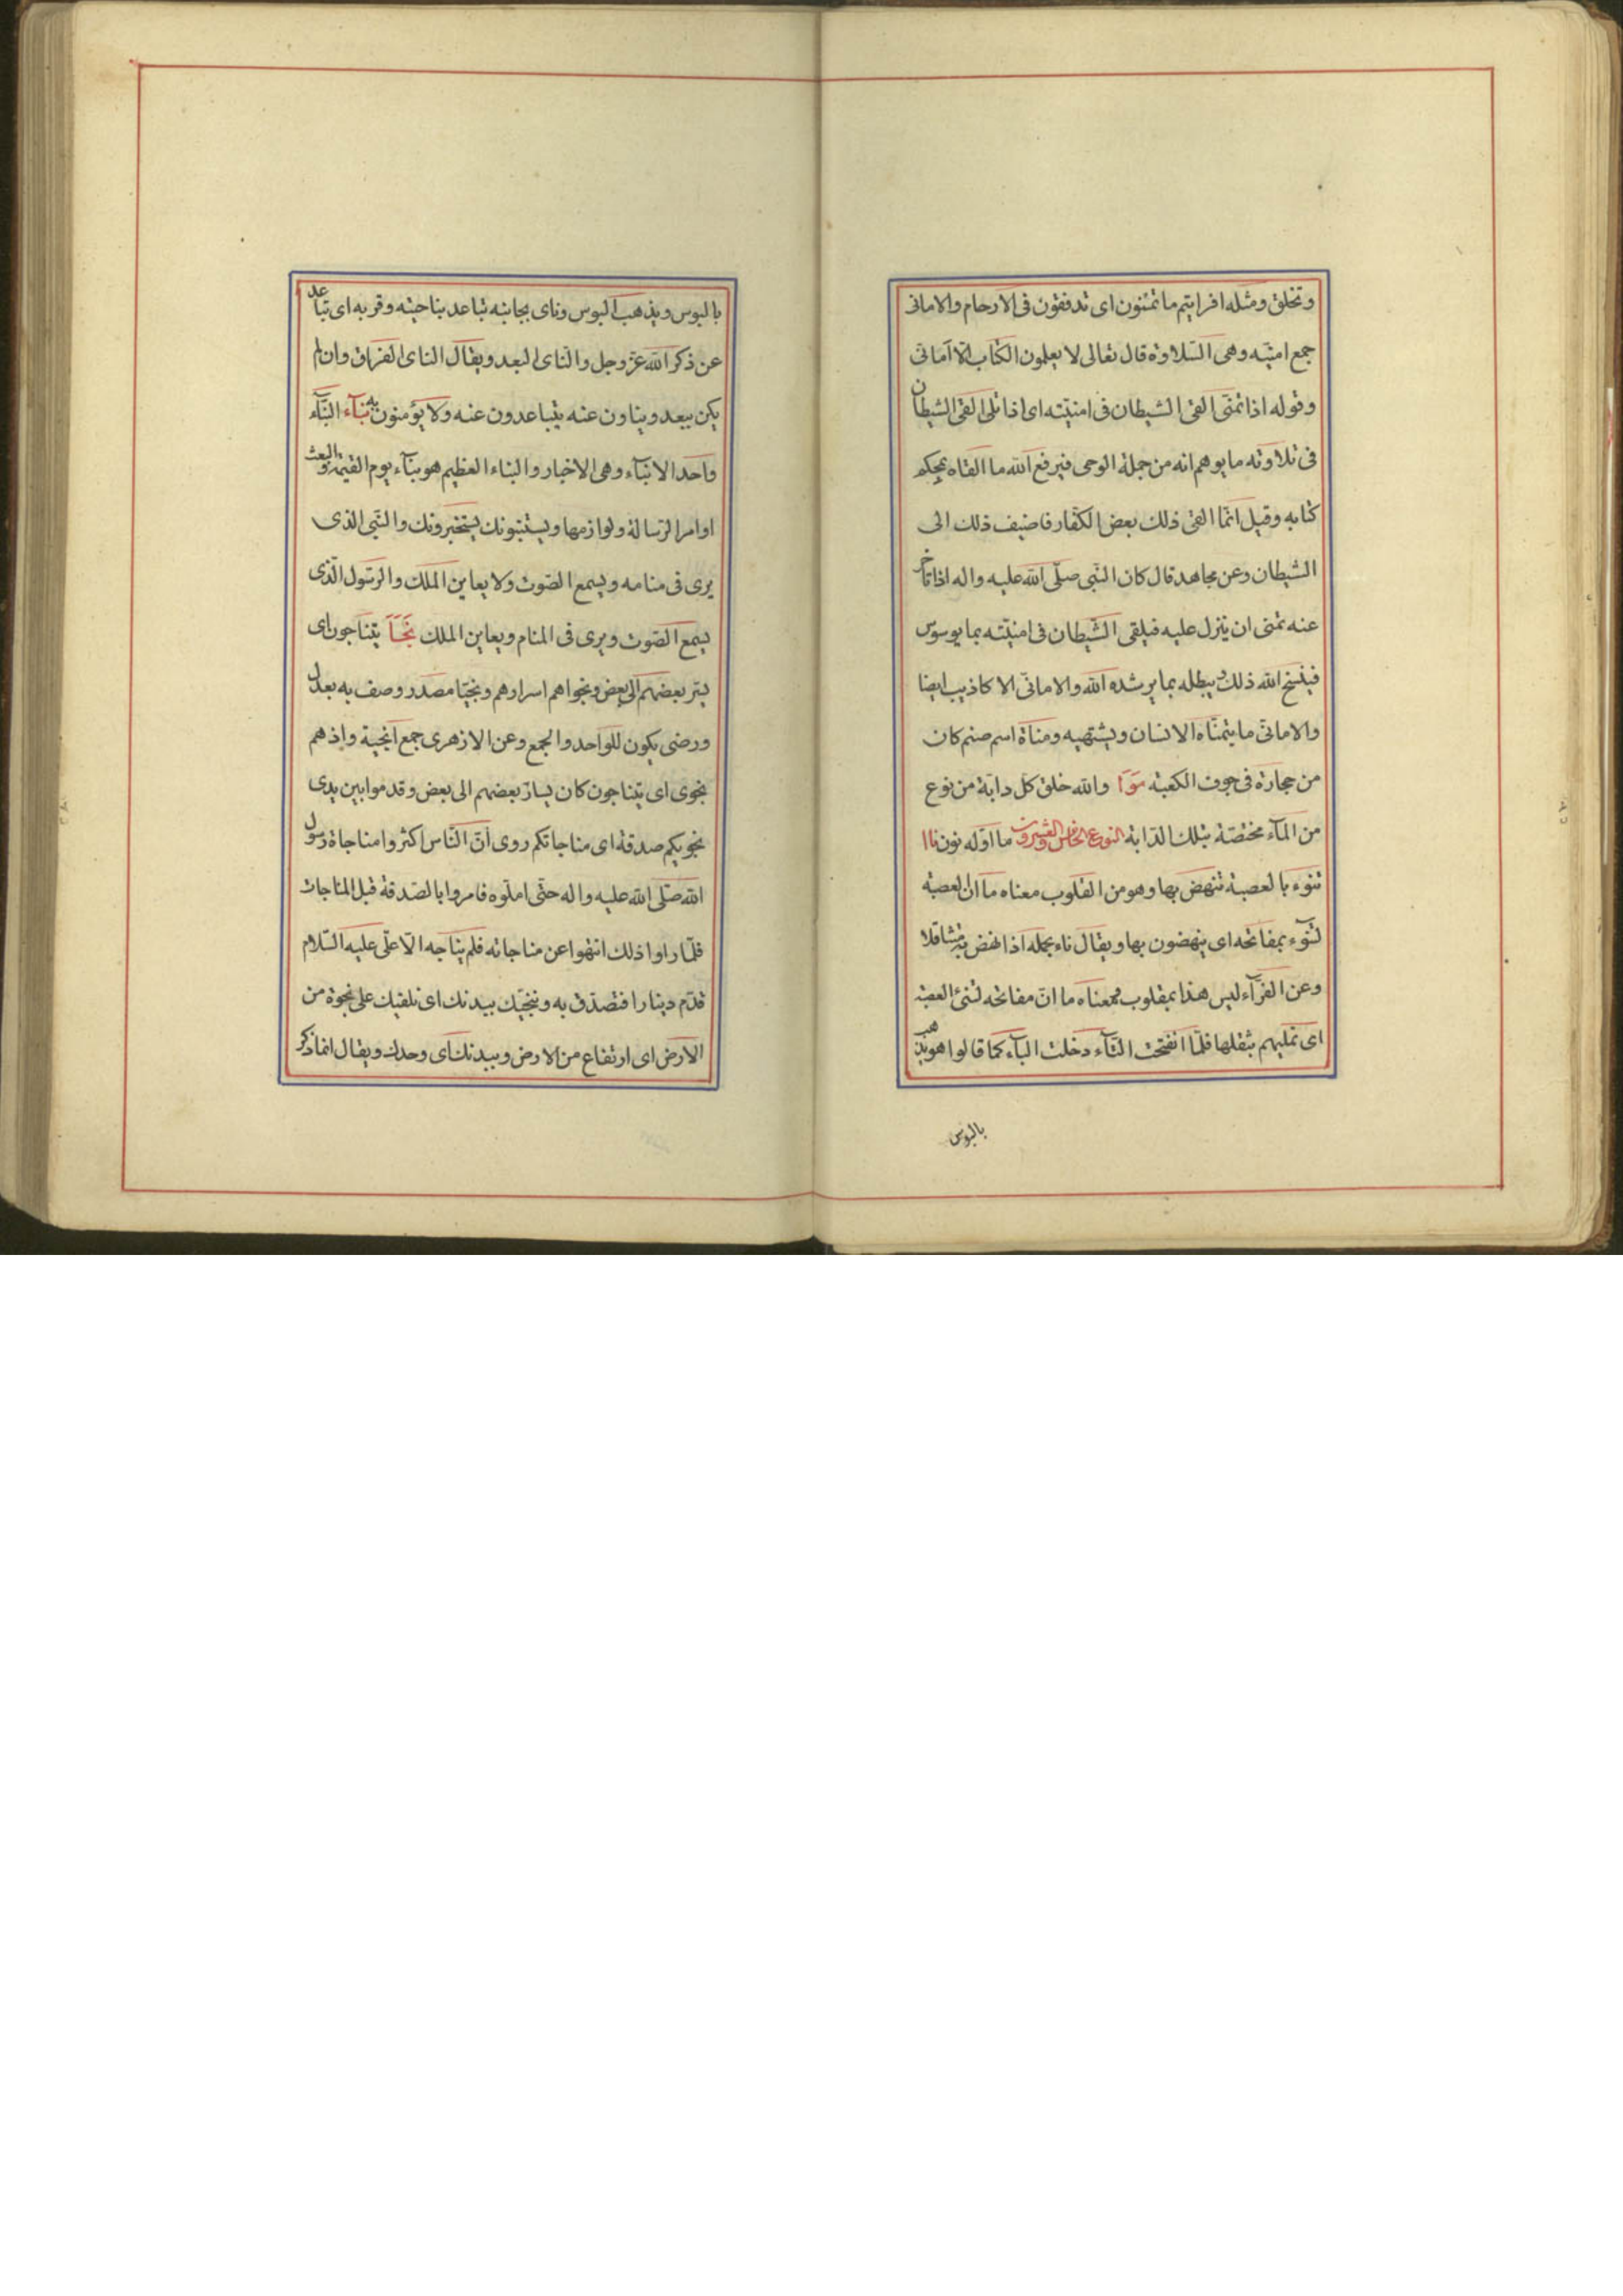 وتخلق ومثله افرايتم ما تمنون اى تدفقون فى الارحام والامانى
جمع امنيّه وهى التلاوة قال تعالى لا يعلمون الكتاب الّا امانىّ
وقوله اذا تمنّى القى الشيطان فى امنيّته اى اذا تلى القى الشيطان
فى تلاوته ما يوهم انه من جملة الوحى فيرفع الله ما القاه بمحكم
كتابه وقيل انّما القى ذلك بعض الكفّار فاضيف ذلك الى
الشيطان وعن مجاهد قال كان النّبى صلّى الله عليه واله اذا تاخر
عنه تمنى ان ينزل عليه فيلقى الشّيطان فى امنيّته بما يوسوس
فينسخ الله ذلك ويبطله بما يرشده الله والامانىّ الاكاذيب ايضا
والامانىّ ما يتمنّاه الانسان ويشتهيه ومناة اسم صنم كان
من حجارة فى جوف الكعبة مَوَاَ والله خلق كل دابّة من نوع
من المآء مختصّة بتلك الدّابة النوع الخامس والعشرون ما اوّله نون نااا
تنوء بالعصبة تنهض بها وهو من القلوب معناه ما ان العصبة
لتوء بمفاتحه اى ينهضون بها ويقال ناء بحمله اذا نهض به متثاقلا
وعن الفرّآء ليس هذا بمقلوب فمعناه ما انّ مفاتحه لتنئ العصبة
اى تمليهم بثقلها فلمّا انفتحت التّآء دخلت البآء كما قالوا هو يذهب
بالبوس
بالبوس ويذهب البوس وناى بجانبه تباعد بناحيته وقربه اى تباعد
عن ذكر الله عزّ وجل والنّاى البعد ويقال الناى الفراق وان لم
يكن ببعد ويناون عنه يتباعدون عنه ولا يؤمنون به نبآء النبّآء
واحد الانبآء وهى الاخبار والنباء العظيم هو نبآء يوم القيمة والبعث
اوامر الرّسالة ولوازمها ويستنبونك يستخبرونك والنّبى الذى
يرى فى منامه ويسمع الصّوت ولا يعاين الملك والرّسول الّذى
يسمع الصّوت ويرى فى المنام ويعاين الملك نَجَاَ يتناجون اى
يسّر بعضهم الى بعض ونجواهم اسرارهم ونجيّا مصدر وصف به بعدل
ورضى يكون للواحد والجمع وعن الازهرى جمع انجية واذهم
نجوى اى يتناجون كان يسارّ بعضهم الى بعض وقدموا بين يدى
نجويكم صدقة اى مناجاتكم روى انّ النّاس اكثروا مناجاة رسول
الله صلّى الله عليه واله حتّى املّوه فامروا بالصّدقة قبل المناجات
فلمّا راوا ذلك انتهوا عن مناجاته فلم يناجه الّا علّى عليه السّلام
قدّم دينارا فتصدّق به وننجّيك ببدنك اى نلقيك على نجوة من
الارض اى ارتفاع من الارض وببدنك اى وحدك ويقال انما ذكر